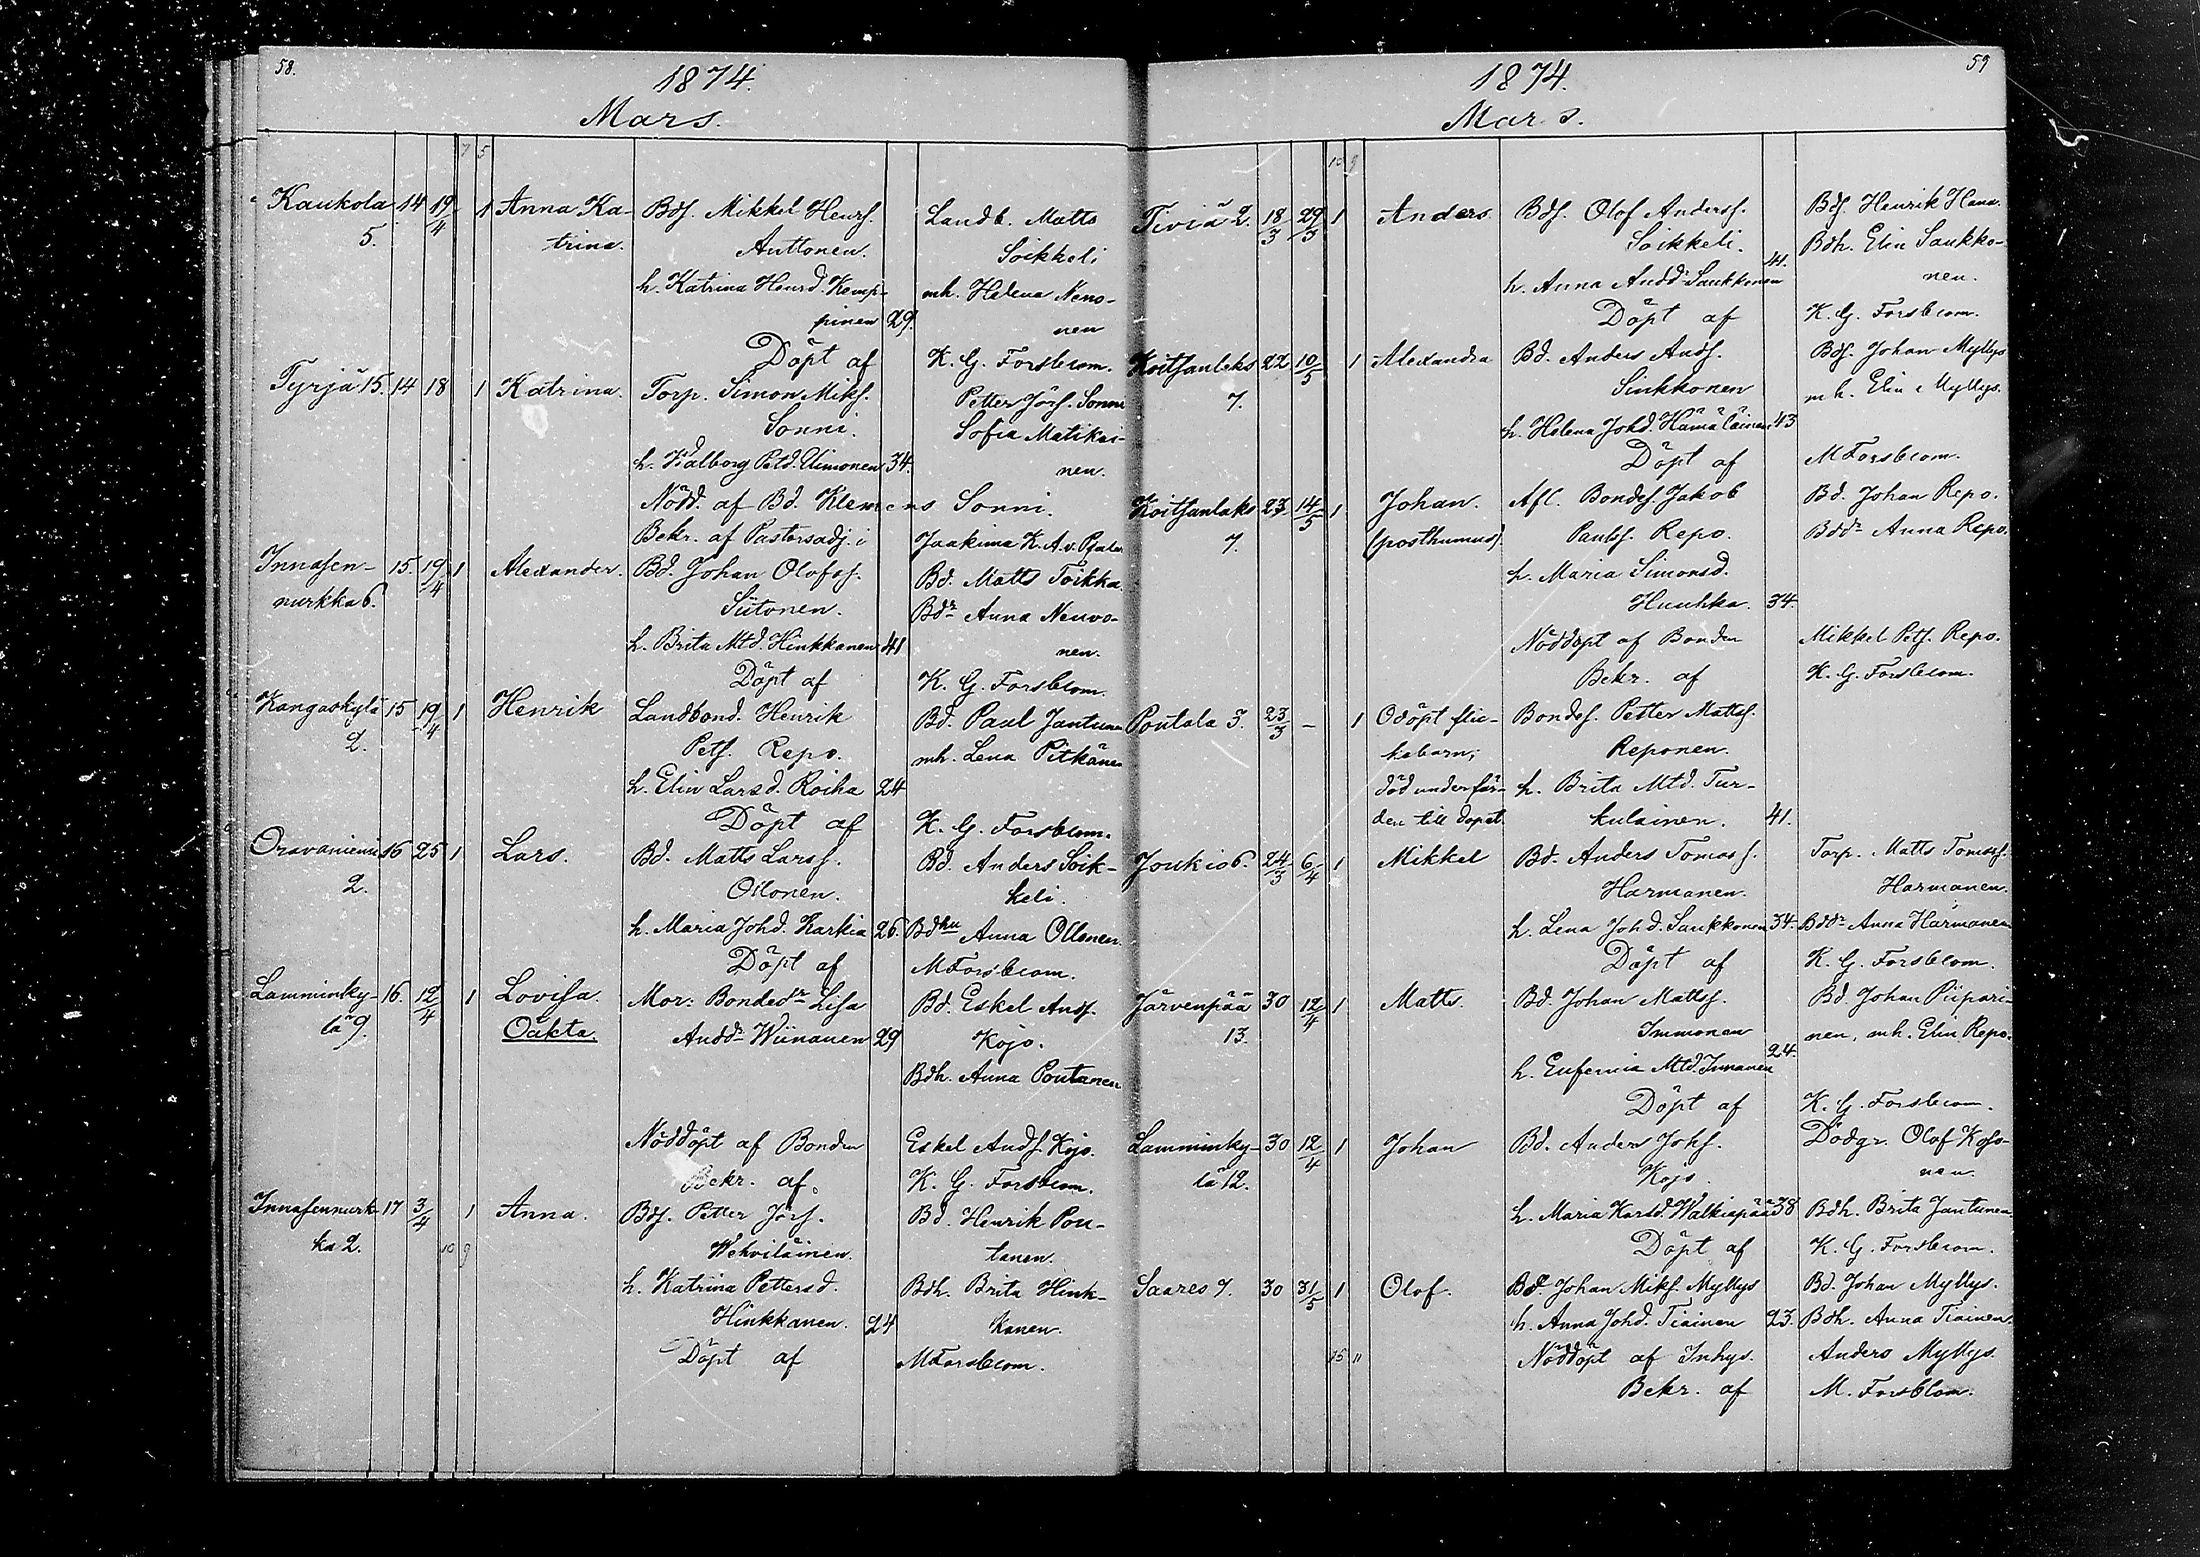 58.
1874.
Mars.
7 5
Kaukola 14 19/4 1 Anna Ka- Bdf. Mikkel Henrs. Landb. Matts
5. trina. Anttonen. Soikkeli
h. Katrina Henrsd. Kemp- mh. Helena Neno-
pinen 29. nen
Döpt af K. G. Forsblom.
Tyrjä 15. 14 18 1 Katrina. Torp. Simon Miks. Petter Jörs. Sonni
Sonni. Sofia Matikai-
h. Wålborg Petd. Simonen 34. nen.
Nödd. af Bd. Klemens Sonni.
Bekr. af Pastorsadj. i Jaakima K. A. v.
Innasen- 15. 19/4 1 Alexander. Bd. Johan Olofss. Bd. Matts Toikka.
nurkka 6. Siitonen. Bdr Anna Neuvo-
h. Brita Mtd. Hinkkanen 41 nen.
Döpt af K. G. Forsblom.
Kangaskylä 15 19/4 1 Henrik Landbond. Henrik Bd. Paul Jantunen
2. Pets. Repo. mh. Lena Pitkänen
h. Elin Larsd. Roiha 24
Döpt af K. G. Forsblom.
Oravaniemi 16 25 1 Lars. Bd. Matts Larss. Bd. Anders Soik-
2. Oilonen. keli.
h. Maria Johd. Karkia 26. Bdhu Anna Ollonen.
Döpt af M Forsblom.
Lamminky- 16. 12/4 1 Lovisa. Mor: Bondedr Lisa Bd. Eskel Ands.
lä 9. Oäkta. Andd. Wiinanen 29 Kojo.
Bdh. Anna Pontanen
Nöddöpt af Bonden Eskel Ands. Kojo.
Bekr. af. K. G. Forsblom.
Innasennurk- 17 3/4 1 Anna. Bdf. Petter Jörs. Bd. Henrik Pon-
ka 2. 10 9 Wehviläinen. tanen.
h. Katrina Pettersd. Bdh. Brita Hink-
Hinkkanen. 24 kanen.
Döpt af M Forsblom.
59
1874.
Mars.
10 9
Tiviä 2. 18/3 29/3 1 Anders Bdf. Olof Anderss. Bdf. Henrik
Soikkeli. Bdh. Elin Saukko-
h. Anna Andd. Saukkonen 41. nen.
Döpt af K. G. Forsblom.
Koitsanlaks 22 10/5 1 Alexandra Bd. Anders Ands. Bdf. Johan Myllys
7. Sinkkonen mh. Elin Myllys.
h. Helena Johd. Hämäläinen 43
Döpt af M Forsblom.
Koitsanlaks 23 14/5 1 Johan. Afl. Bondes. Jakob Bd. Johan Repo.
7. (posthumus) Paulss. Repo. Bddr Anna Repo.
h. Maria Simonsd.
Huuhka. 34.
Nöddöpt af Bonden Mikkel Pets. Repo.
Bekr. af K. G. Forsblom.
Poutala 3. 23/3 – 1 Odöpt flic- Bondes. Petter Mattss.
kebarn; Reponen.
död under fär- h. Brita Mtd. Tur-
den till dopet. kulainen. 41.
Joukio 6. 24/3 6/4 1 Mikkel Bd. Anders Tomass. Torp. Matts Tomass.
Harmanen. Harmanen.
h. Lena Johd. Saukkonen 34. Bddr Anna Harmanen
Döpt af K. G. Forsblom.
Järvenpää 30 12/4 1 Matts. Bd. Johan Mattss. Bd. Johan Piipari-
13. Immonen nen, mh. Elin Repo.
h. Eufemia Mtd. Innanen 24.
Döpt af K. G. Forsblom.
Lamminky- 30 12/4 1 Johan Bd. Anders Johs. Dödgr. Olof Kojo-
lä 12. Kojo. nen.
h. Maria Karsd. Walkiapää 38 Bdh. Brita Jantunen
Döpt af K. G. Forsblom.
Saares 7. 30 31/5 1 Olof. Bd. Johan Miks. Myllys Bd. Johan Myllys.
h. Anna Johd. Tiainen 23. Bdh. Anna Tiainen.
15 11 Nöddöpt af Inhys. Anders Myllys.
Bekr. af M. Forsblom.